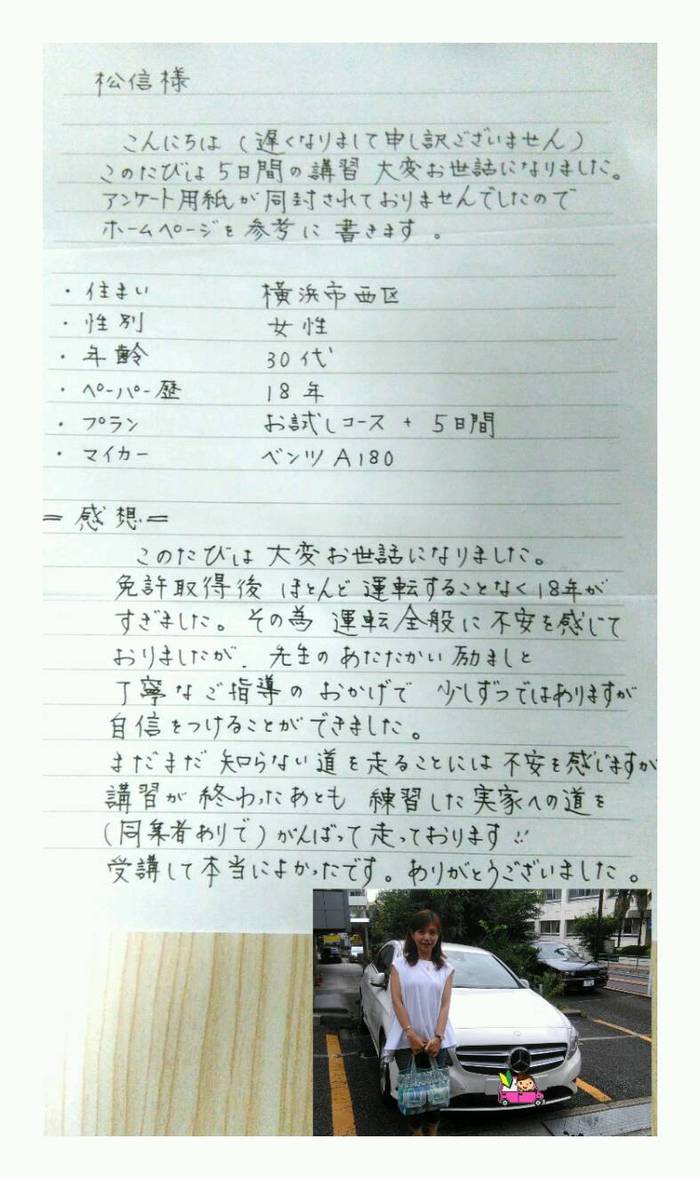 松信様
こんにちは（遅くなりまして申し訳ございません）
このたびは5日間の講習 大変お世話になりました。
アンケート用紙が同封されておりませんでしたので
ホームページを参考に書きます。
・住まい 横浜市西区
・性別 女性
・年齢 30代
・ペーパー歴 18年
・プラン お試しコース + 5日間
・マイカー ベンツA180
=感想=
このたびは大変お世話になりました。
免許取得後 ほとんど運転することなく18年が
すぎました。その為 運転全般に不安を感じて
おりましたが、先生のあたたかい励ましと
丁寧なご指導のおかげで 少しずつではありますが
自信をつけることができました。
まだまだ知らない道を走ることには不安を感じますが
講習が終わったあとも 練習した実家への道を
(同業者ありで)がんばって走っております
受講して本当によかったです。ありがとうございました。